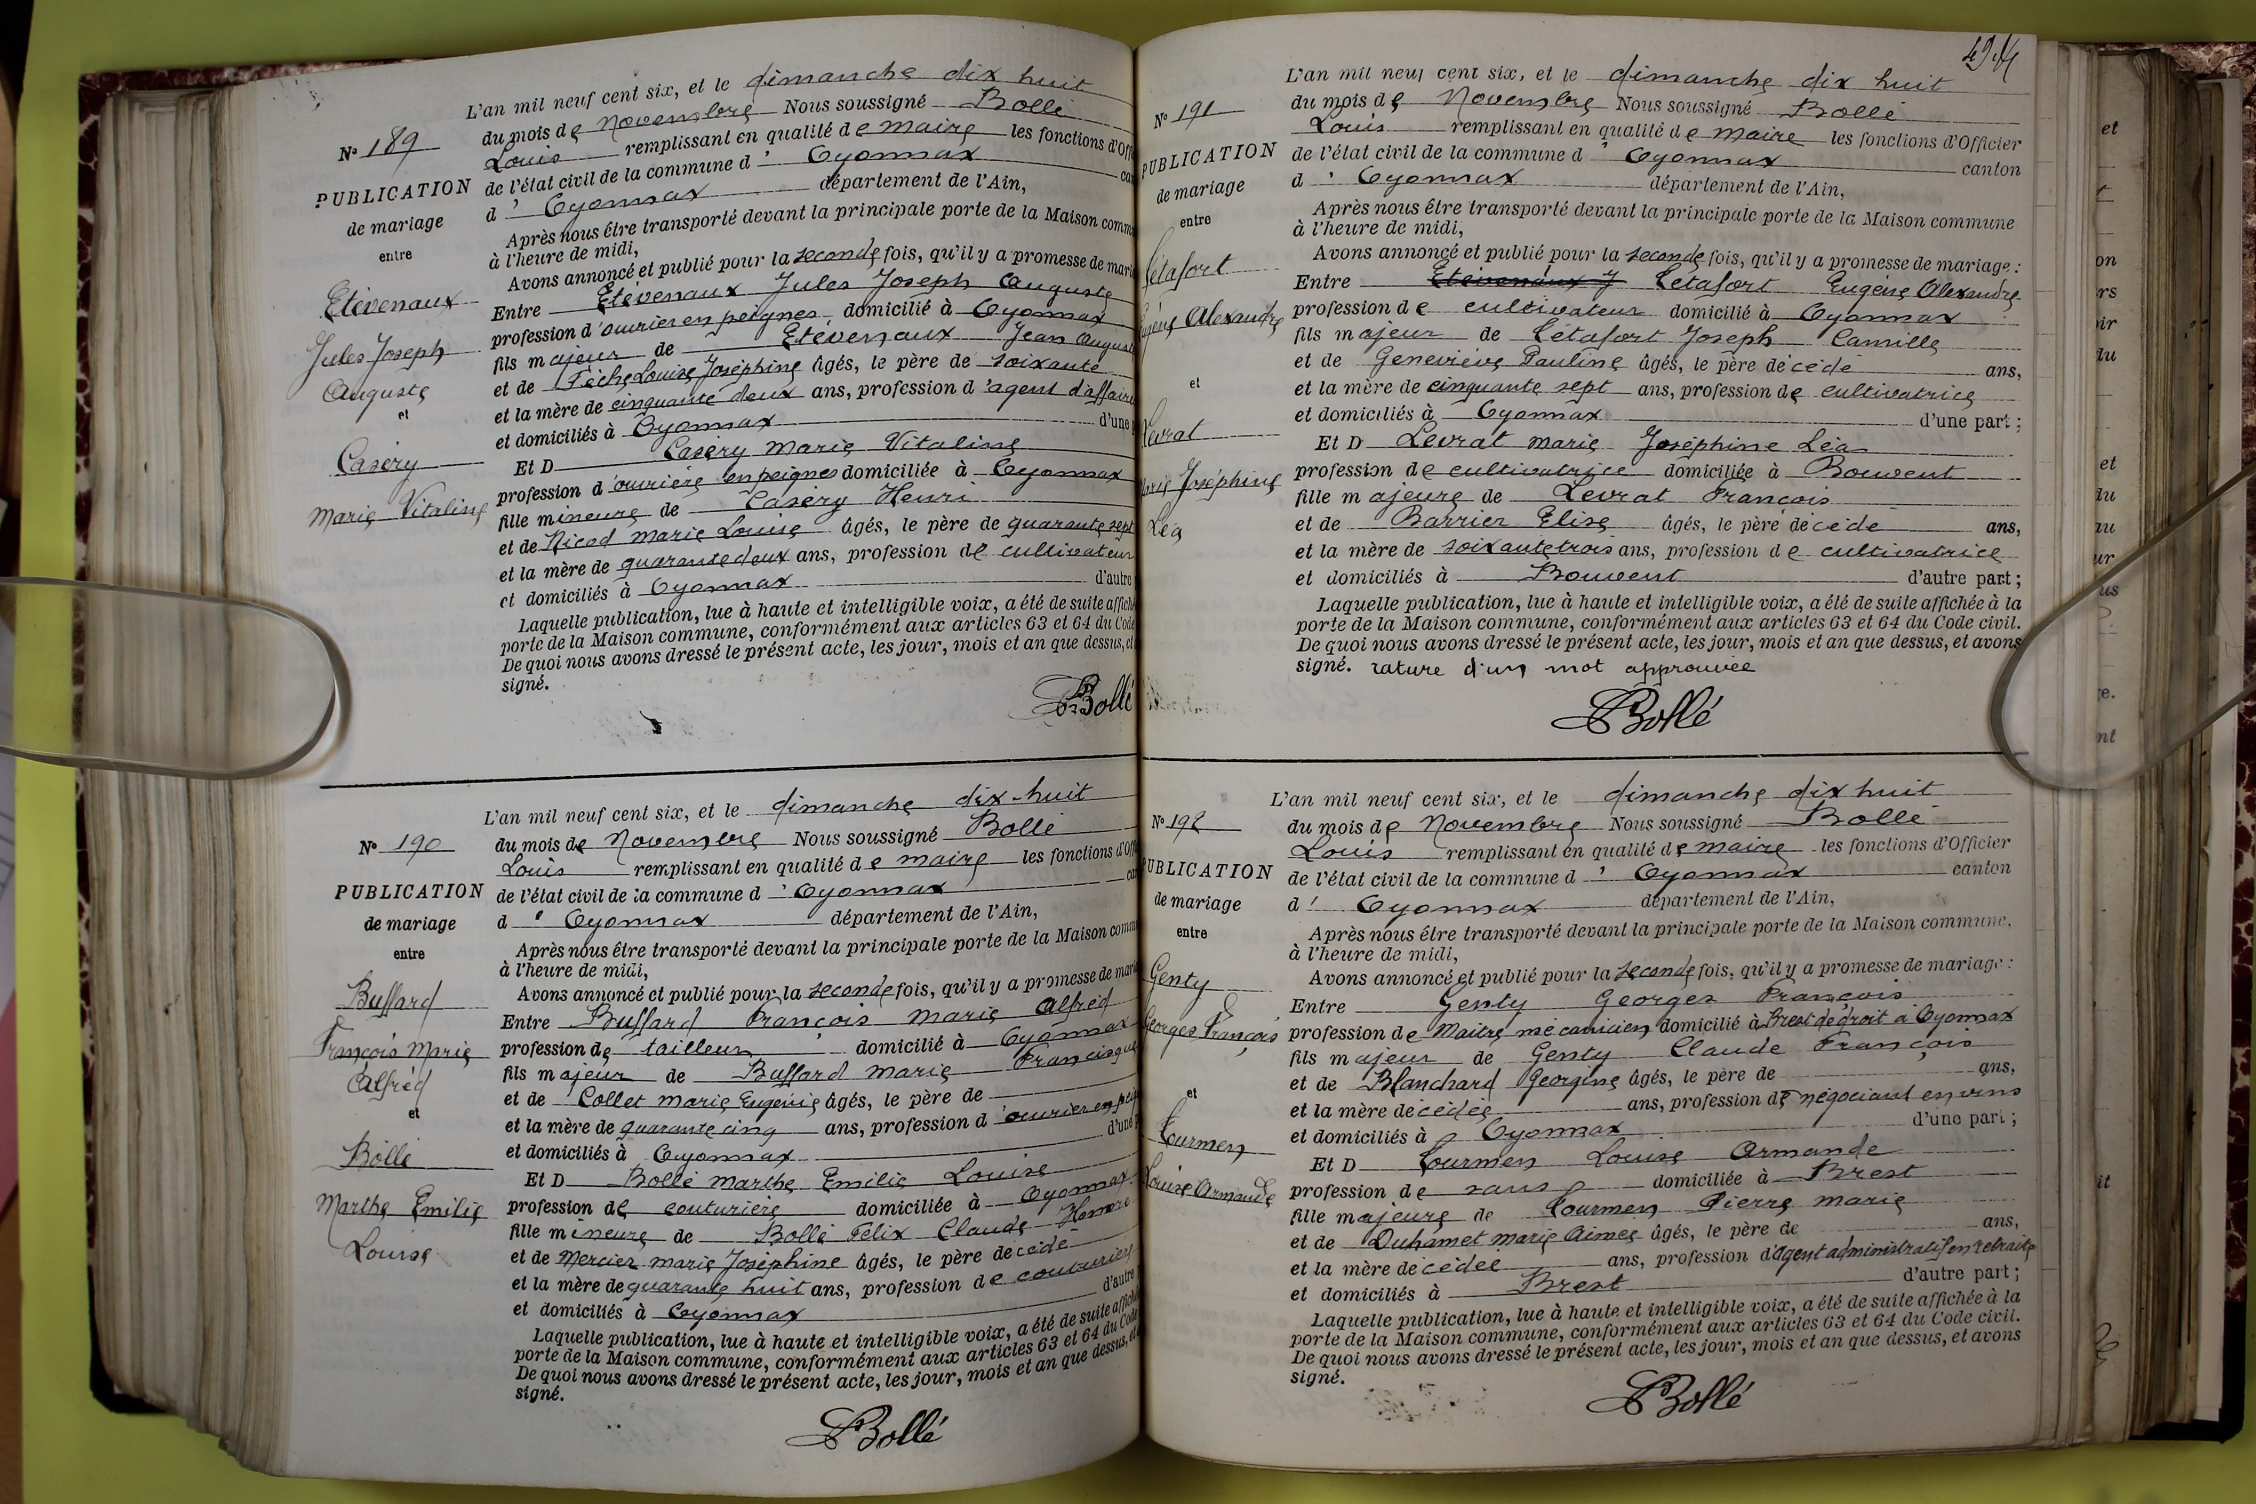 N° 189
PUBLICATION
de mariage
entre
Etévenaux
Jules Joseph
Auguste
et
Caséry
Marie Vitaline
L'an mil neuf cent six, et le dimanche dix huit
du mois de Novembre Nous soussigné Bollé
Louis remplissant en qualité de maire les fonctions d'Offi
de l'état civil de la commune d' Oyonnax can
d' Oyonnax département de l'Ain,
Après nous être transporté devant la principale porte de la Maison comm
à l'heure de midi,
Avons annoncé et publié pour la seconde fois, qu'il y a promesse de mari
Entre Etévenaux Jules Joseph Auguste
profession d'ouvrier en peignes domicilié à Oyonnax
fils majeur de Etévenaux Jean Auguste
et de Louise Joséphine âgés, le père de soixante
et la mère de cinquante deux ans, profession d'agent d'affaire
et domiciliés à Oyonnax d'une
Et D Caséry Marie Vitaline
profession d'ouvrière en peignes domiciliée à Oyonnax
fille mineure de Caséry Henri
et de Nicod Marie Louise âgés, le père de quarante sept
et la mère de quarante deux ans, profession de cultivateur
et domiciliés à Oyonnax d'autre
Laquelle publication, lue à haute et intelligible voix, a été de suite affich
porte de la Maison commune, conformément aux articles 63 et 64 du Code
De quoi nous avons dressé le présent acte, les jour, mois et an que dessus, et
signé.
Bollé
N° 190
PUBLICATION
de mariage
entre
Buffard
François Marie
Alfred
et
Bollé
Marthe Emilie
Louise
L'an mil neuf cent six, et le dimanche dix-huit
du mois de Novembre Nous soussigné Bollé
Louis remplissant en qualité de maire les fonctions d'Offi
de l'état civil de la commune d' Oyonnax can
d' Oyonnax département de l'Ain,
Après nous être transporté devant la principale porte de la Maison comm
à l'heure de midi,
Avons annoncé et publié pour la seconde fois, qu'il y a promesse de maria
Entre Buffard François Marie Alfred
profession de tailleur domicilié à Oyonnax
fils majeur de Buffard Marie Francisque
et de Collet Marie Eugénie âgés, le père de
et la mère de quarante cinq ans, profession d'ouvrier en peig
et domiciliés à Oyonnax d'une
Et D Bollé Marthe Emilie Louise
profession de couturière domiciliée à Oyonnax
fille mineure de Bollé Félix Claude Honoré
et de Mercier Marie Joséphine âgés, le père décédé
et la mère de quarante huit ans, profession de couturière
et domiciliés à Oyonnax d'autre
Laquelle publication, lue à haute et intelligible voix, a été de suite affich
porte de la Maison commune, conformément aux articles 63 et 64 du Code
De quoi nous avons dressé le présent acte, les jour, mois et an que dessus, et
signé.
Bollé
N° 191
PUBLICATION
de mariage
entre
Létafort
Eugène Alexandre
et
Levrat
Marie Joséphine
Léa
L'an mil neuf cent six, et le dimanche dix huit
du mois de Novembre Nous soussigné Bollé
Louis remplissant en qualité de maire les fonctions d'Officier
de l'état civil de la commune d' Oyonnax canton
d' Oyonnax département de l'Ain,
Après nous être transporté devant la principale porte de la Maison commune
à l'heure de midi,
Avons annoncé et publié pour la seconde fois, qu'il y a promesse de mariage :
Entre Etévenaux J Létafort Eugène Alexandre
profession de cultivateur domicilié à Oyonnax
fils majeur de Létafort Joseph Camille
et de Geneviève Pauline âgés, le père décédé ans,
et la mère de cinquante sept ans, profession de cultivatrice
et domiciliés à Oyonnax d'une part ;
Et D Levrat Marie Joséphine Léa
profession de cultivatrice domiciliée à Bouvent
fille majeure de Levrat François
et de Barrier Elise âgés, le père décédé ans,
et la mère de soixante trois ans, profession de cultivatrice
et domiciliés à Bouvent d'autre part ;
Laquelle publication, lue à haute et intelligible voix, a été de suite affichée à la
porte de la Maison commune, conformément aux articles 63 et 64 du Code civil.
De quoi nous avons dressé le présent acte, les jour, mois et an que dessus, et avons
signé. rature d'un mot approuvée
Bollé
N° 192
PUBLICATION
de mariage
entre
Genty
Georges François
et
Tourmen
Louise Armande
L'an mil neuf cent six, et le dimanche dix huit
du mois de Novembre Nous soussigné Bollé
Louis remplissant en qualité de maire les fonctions d'Officier
de l'état civil de la commune d' Oyonnax canton
d' Oyonnax département de l'Ain,
Après nous être transporté devant la principale porte de la Maison commune,
à l'heure de midi,
Avons annoncé et publié pour la seconde fois, qu'il y a promesse de mariage :
Entre Genty Georges François
profession de Maître mécanicien domicilié à Brest de droit à Oyonnax
fils majeur de Genty Claude François
et de Blanchard Georgine âgés, le père de ans,
et la mère décédée ans, profession de négociant en vins
et domiciliés à Oyonnax d'une part ;
Et D Tourmen Louise Armande
profession de sans domiciliée à Brest
fille majeure de Tourmen Pierre Marie
et de Duhamet Marie Aimée âgés, le père de ans,
et la mère décédée ans, profession d'agent administratif en retraite
et domiciliés à Brest d'autre part ;
Laquelle publication, lue à haute et intelligible voix, a été de suite affichée à la
porte de la Maison commune, conformément aux articles 63 et 64 du Code civil.
De quoi nous avons dressé le présent acte, les jour, mois et an que dessus, et avons
signé.
Bollé